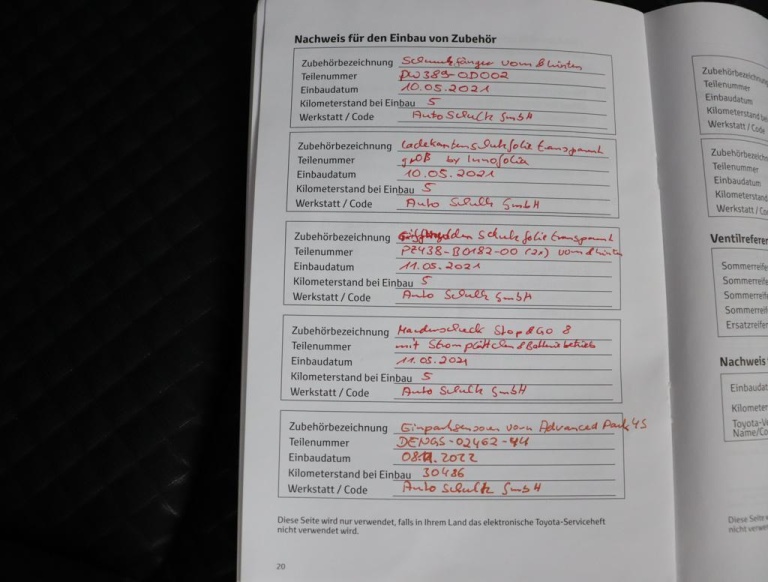 Nachweis für den Einbau von Zubehör
Zubehörbezeichnung Schmutzfänger vorn & hinten
Teilenummer PW389-0D002
Einbaudatum 10.05.2021
Kilometerstand bei Einbau 5
Werkstatt / Code Auto Schultz GmbH
Zubehörbezeichnung Ladekantenschutzfolie transparent
Teilenummer groß by Innofolia
Einbaudatum 10.05.2021
Kilometerstand bei Einbau 5
Werkstatt / Code Auto Schultz GmbH
Zubehörbezeichnung Schutzfolie transparent
Teilenummer PZ438-B0182-00 (2x) vorn & hinten
Einbaudatum 11.05.2021
Kilometerstand bei Einbau 5
Werkstatt / Code Auto Schultz GmbH
Zubehörbezeichnung Marderscheck Stop & GO 8
Teilenummer mit Stromplättchen & Batteriebetrieb
Einbaudatum 11.05.2021
Kilometerstand bei Einbau 5
Werkstatt / Code Auto Schultz GmbH
Zubehörbezeichnung Einparksensoren vorn Advanced Park 4S
Teilenummer DENGS-02462-44
Einbaudatum 2022
Kilometerstand bei Einbau 30486
Werkstatt / Code Auto Schultz GmbH
Diese Seite wird nur verwendet, falls in Ihrem Land das elektronische Toyota-Serviceheft
nicht verwendet wird.
20
Teilenummer
Einbaudatum
Kilometerstand
Werkstatt / Code
Teilenummer
Einbaudatum
Kilometerstand
Werkstatt / Code
Nachweis
Toyota-V
Name/Co
Diese Seite